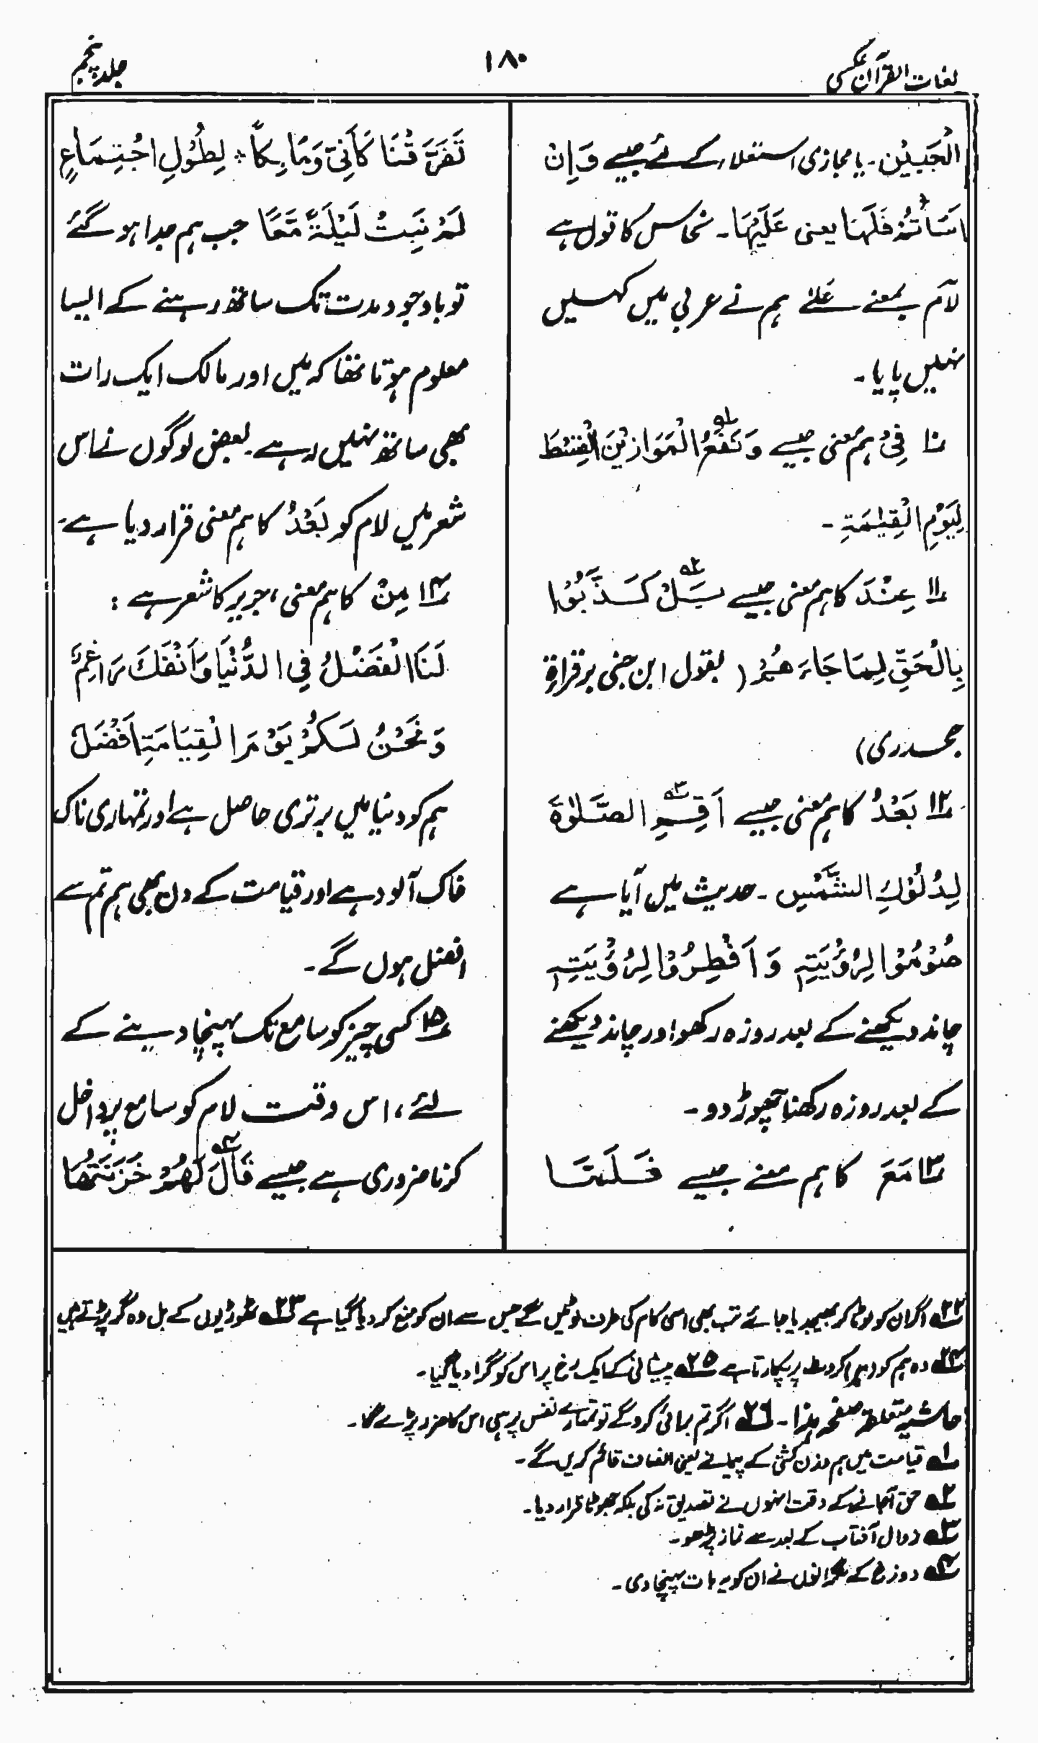 لغات القرآن عکسی
۱۸۰
جلد پنجم
الْجَبِیْن۔ یا مجازی استعلاء کے لئے جیسے وَاِنْ
اَسَاْتُمْ فَلَہَا یعنی عَلَیْہَا۔ نحاس کا قول ہے
لآم بمعنے عَلٰے ہم نے عربی میں کہیں
نہیں پایا۔
۱۰ فِیْ ہم معنی جیسے وَنَضَعُ الْمَوَازِیْنَ الْقِسْطَ
لِیَوْمِ الْقِیٰمَۃِ۔
۱۱ عِنْدَ کا ہم معنی جیسے بَلْ کَذَّبُوْا
بِالْحَقِّ لِمَا جَاءَ ھُمْ (بقول ابن جنی بر قراۃ
جحدری)
۱۲ بَعْدُ کا ہم معنی جیسے اَقِمِ الصَّلٰوۃَ
لِدُلُوْكِ الشَّمْسِ۔ حدیث میں آیا ہے
صُوْمُوْا لِرُؤْیَتِہٖ وَاَفْطِرُوْا لِرُؤْیَتِہٖ
چاند دیکھنے کے بعد روزہ رکھو اور چاند دیکھنے
کے بعد روزہ رکھنا چھوڑ دو۔
۱۳ مَعَ کا ہم معنے جیسے فَلَمَّا
تَفَرَّقْنَا کَاَنِّیْ وَمَالِکًا ؞ لِطُوْلِ اجْتِمَاعٍ
لَمْ نَبِتْ لَیْلَۃً مَّعًا جب ہم جدا ہو گئے
تو باوجود مدت تک ساتھ رہنے کے ایسا
معلوم ہوتا تھا کہ میں اور مالک ایک رات
بھی ساتھ نہیں رہے۔ بعض لوگوں نے اس
شعر میں لام کو بَعْدُ کا ہم معنی قرار دیا ہے۔
۱۴ مِنْ کا ہم معنی، جریر کا شعر ہے :
لَنَا الْفَضْلُ فِی الدُّنْیَا وَاَنْفُكَ رَاغِمٌ
وَنَحْنُ لَکُمْ یَوْمَ الْقِیَامَۃِ اَفْضَلُ
ہم کو دنیا میں برتری حاصل ہے اور تمہاری ناک
خاک آلود ہے اور قیامت کے دن بھی ہم تم سے
افضل ہوں گے۔
۱۵ کسی چیز کو سامع تک پہنچا دینے کے
لئے، اس وقت لام کو سامع پر داخل
کرنا ضروری ہے جیسے قَالَ لَھُمْ خَزَنَتُھَا
۲۲؎ اگر ان کو لوٹا کر بھیجدیا جائے تب بھی اسی کام کی طرف لوٹیں گے جس سے ان کو منع کر دیا گیا ہے ۲۳؎ ٹھوڑیوں کے بل وہ گر پڑتے ہیں
۲۴؎ وہ ہم کو کروٹ پر پکارتا ہے ۲۵؎ پیشانی کے ایک رخ پر اس کو گرا دیا گیا۔
حاشیہ متعلقہ صفحہ ہذا۔ ۲۶؎ اگر تم برائی کرو گے تو تمہارے نفس پر ہی اس کا ضرر پڑے گا۔
۱؎ قیامت میں ہم وزن کشی کے پیمانے یعنی انصاف قائم کریں گے۔
۲؎ حق آجانے کے وقت انہوں نے تصدیق نہ کی بلکہ جھوٹا قرار دیا۔
۳؎ زوال آفتاب کے بعد سے نماز پڑھو۔
۴؎ دوزخ کے نگرانوں نے ان کو یہ بات پہنچا دی۔